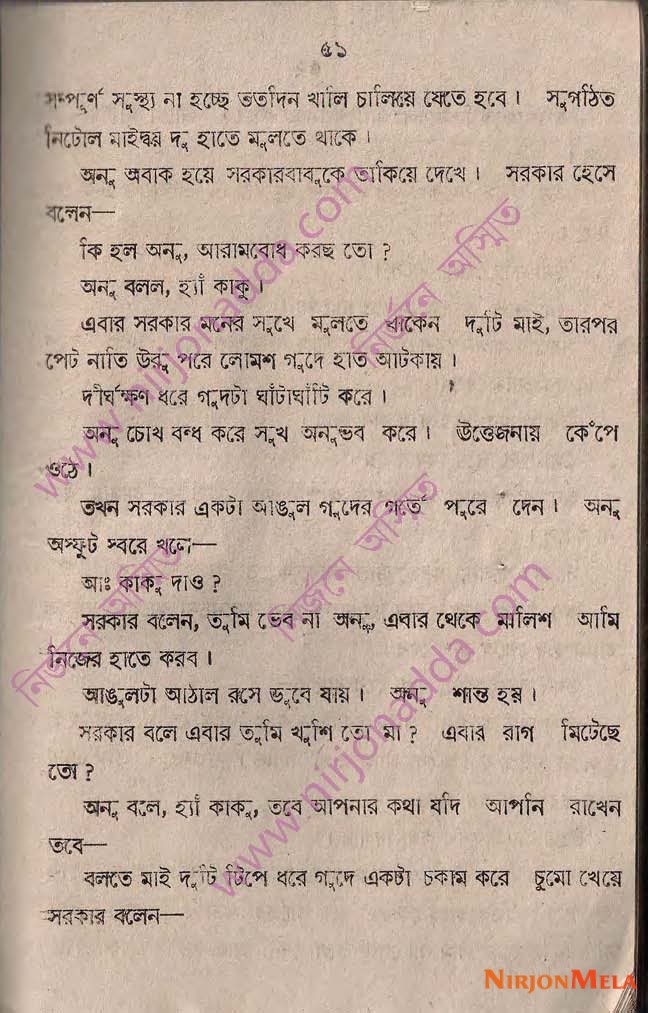 ৫১
সম্পূর্ণ সুস্থ্য না হচ্ছে ততদিন খালি চালিয়ে যেতে হবে। সুগঠিত
নিটোল মাইদ্বয় দু হাতে মুলতে থাকে।
অনু অবাক হয়ে সরকারবাবুকে তাকিয়ে দেখে। সরকার হেসে
বলেন—
কি হল অনু, আরামবোধ করছ তো ?
অনু বলল, হ্যাঁ কাকু।
এবার সরকার মনের সুখে মুলতে থাকেন দুটি মাই, তারপর
পেট নাতি উরু পরে লোমশ গুদে হাত আটকায়।
দীর্ঘক্ষণ ধরে গুদটা ঘাঁটাঘাঁটি করে।
অনু চোখ বন্ধ করে সুখ অনুভব করে। উত্তেজনায় কেঁপে
ওঠে।
তখন সরকার একটা আঙুল গুদের গর্তে পুরে দেন। অনু
অস্ফুট স্বরে বলে—
আঃ কাকু দাও ?
সরকার বলেন, তুমি ভেব না অনু, এবার থেকে মালিশ আমি
নিজের হাতে করব।
আঙুলটা আঠাল রসে ডুবে যায়। অনু শান্ত হয়।
সরকার বলে এবার তুমি খুশি তো মা ? এবার রাগ মিটেছে
তো ?
অনু বলে, হ্যাঁ কাকু, তবে আপনার কথা যদি আপনি রাখেন
তবে—
বলতে মাই দুটি টিপে ধরে গুদে একটা চকাম করে চুমো খেয়ে
সরকার বলেন—
www.nirjonadda.com
নির্জনে অস্মিত
নির্জনে অস্মিত
নির্জনে অস্মিত
www.nirjonadda.com
NIRJONMELA